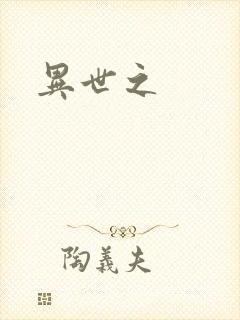 異世之
陶義夫